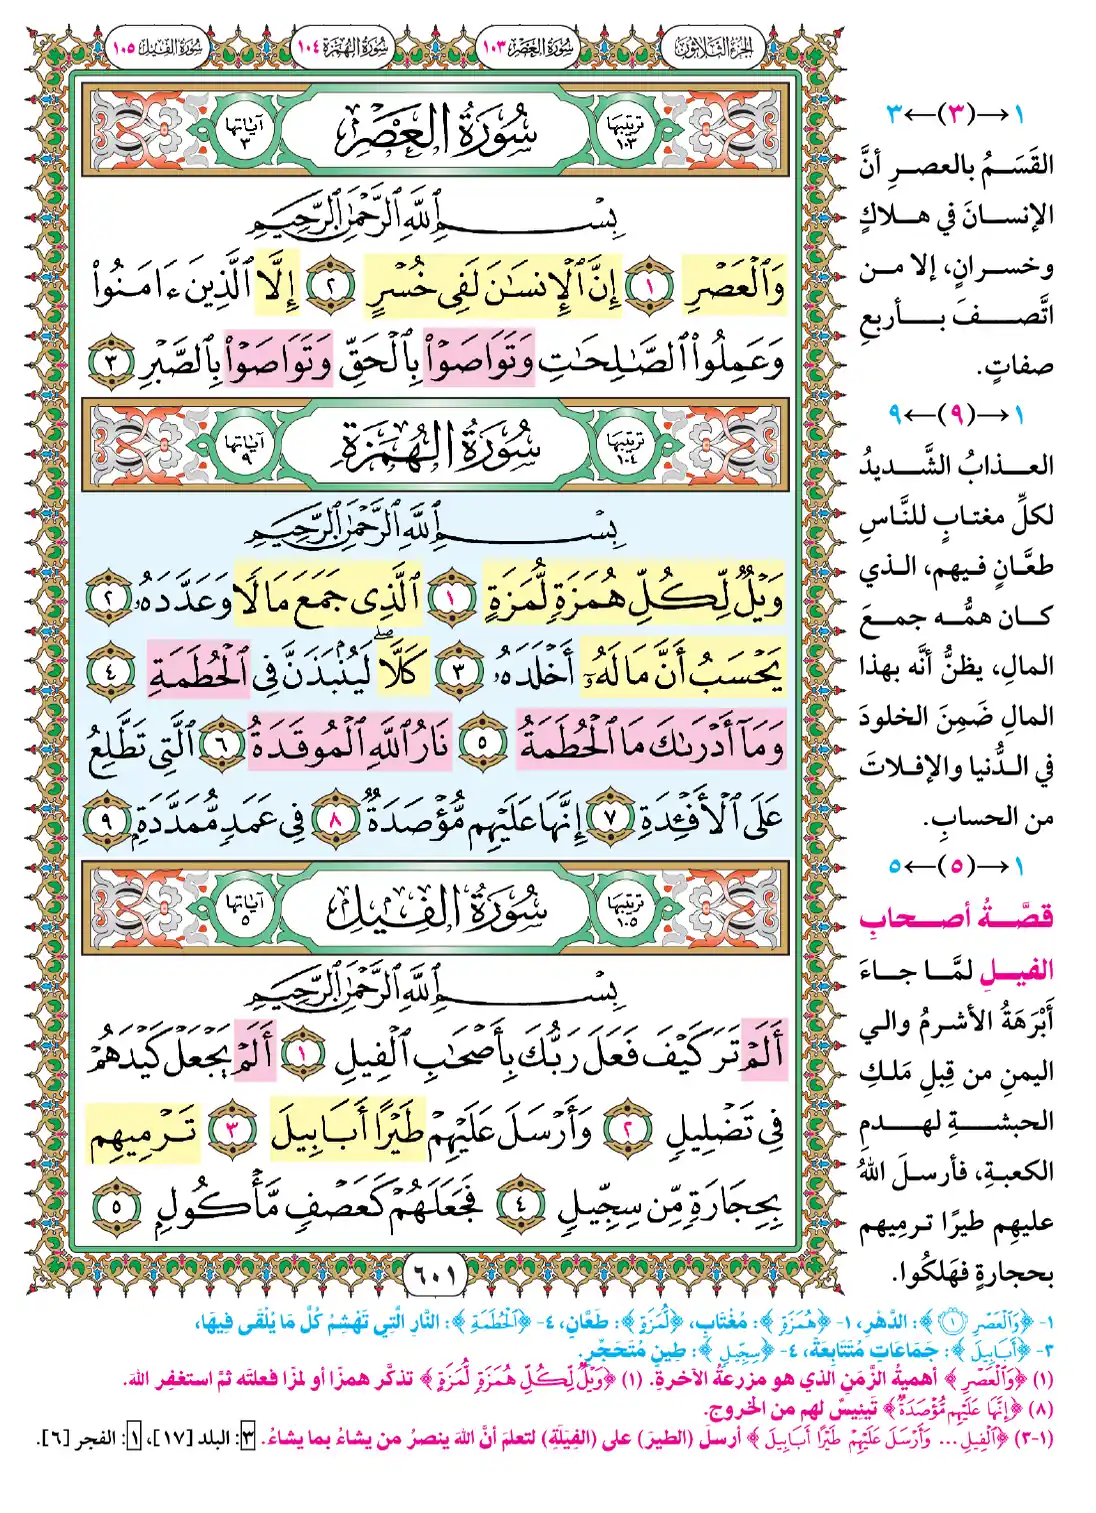 الجزء الثلاثون
سورة العصر ١٠٣
سورة الهمزة ١٠٤
سورة الفيل ١٠٥
ترتيبها ١٠٣
سُورَةُ العَصْرِ
آياتها ٣
بِسْمِ ٱللَّهِ ٱلرَّحْمَٰنِ ٱلرَّحِيمِ
وَٱلْعَصْرِ ١ إِنَّ ٱلْإِنسَٰنَ لَفِى خُسْرٍ ٢ إِلَّا ٱلَّذِينَ ءَامَنُوا۟
وَعَمِلُوا۟ ٱلصَّٰلِحَٰتِ وَتَوَاصَوْا۟ بِٱلْحَقِّ وَتَوَاصَوْا۟ بِٱلصَّبْرِ ٣
ترتيبها ١٠٤
سُورَةُ الهُمَزَةِ
آياتها ٩
بِسْمِ ٱللَّهِ ٱلرَّحْمَٰنِ ٱلرَّحِيمِ
وَيْلٌ لِّكُلِّ هُمَزَةٍ لُّمَزَةٍ ١ ٱلَّذِى جَمَعَ مَالًا وَعَدَّدَهُۥ ٢
يَحْسَبُ أَنَّ مَالَهُۥٓ أَخْلَدَهُۥ ٣ كَلَّا ۖ لَيُنۢبَذَنَّ فِى ٱلْحُطَمَةِ ٤
وَمَآ أَدْرَىٰكَ مَا ٱلْحُطَمَةُ ٥ نَارُ ٱللَّهِ ٱلْمُوقَدَةُ ٦ ٱلَّتِى تَطَّلِعُ
عَلَى ٱلْأَفْـِٔدَةِ ٧ إِنَّهَا عَلَيْهِم مُّؤْصَدَةٌ ٨ فِى عَمَدٍ مُّمَدَّدَةٍۭ ٩
ترتيبها ١٠٥
سُورَةُ الفِيلِ
آياتها ٥
بِسْمِ ٱللَّهِ ٱلرَّحْمَٰنِ ٱلرَّحِيمِ
أَلَمْ تَرَ كَيْفَ فَعَلَ رَبُّكَ بِأَصْحَٰبِ ٱلْفِيلِ ١ أَلَمْ يَجْعَلْ كَيْدَهُمْ
فِى تَضْلِيلٍ ٢ وَأَرْسَلَ عَلَيْهِمْ طَيْرًا أَبَابِيلَ ٣ تَرْمِيهِم
بِحِجَارَةٍ مِّن سِجِّيلٍ ٤ فَجَعَلَهُمْ كَعَصْفٍ مَّأْكُولٍۭ ٥
٦٠١
١→(٣)←٣
القَسَمُ بالعصرِ أنَّ
الإنسانَ في هلاكٍ
وخسرانٍ، إلا من
اتَّصفَ بأربعِ
صفاتٍ.
١→(٩)←٩
العذابُ الشَّديدُ
لكلِّ مغتابٍ للنَّاسِ
طعَّانٍ فيهم، الذي
كان همُّه جمعَ
المالِ، يظنُّ أنَّه بهذا
المالِ ضَمِنَ الخلودَ
في الدُّنيا والإفلاتَ
من الحسابِ.
١→(٥)←٥
قصَّةُ أصحابِ
الفيلِ لمَّا جاءَ
أَبْرَهَةُ الأشرمُ والي
اليمنِ من قِبلِ مَلكِ
الحبشةِ لهدمِ
الكعبةِ، فأرسلَ اللهُ
عليهِم طيرًا ترمِيهم
بحجارةٍ فهَلكُوا.
١- ﴿وَٱلْعَصْرِ ۝١﴾: الدَّهْرِ، ١- ﴿هُمَزَةٍ﴾: مُغْتَابٍ، ﴿لُّمَزَةٍ﴾: طَعَّانٍ، ٤- ﴿ٱلْحُطَمَةِ﴾: النَّارِ الَّتِي تَهْشِمُ كُلَّ مَا يُلْقَى فِيهَا،
٣- ﴿أَبَابِيلَ﴾: جَمَاعَاتٍ مُتَتَابِعَةً، ٤- ﴿سِجِّيلٍ﴾: طِينٍ مُتَحَجِّرٍ.
(١) ﴿وَٱلْعَصْرِ﴾ أهميةُ الزَّمَنِ الذي هو مزرعةُ الآخرةِ. (١) ﴿وَيْلٌ لِّكُلِّ هُمَزَةٍ لُّمَزَةٍ﴾ تذكَّر همزًا أو لمزًا فعلتَه ثمَّ استغفِر اللهَ.
(٨) ﴿إِنَّهَا عَلَيْهِم مُّؤْصَدَةٌ﴾ تَيئِيسٌ لهم من الخروجِ.
(١-٣) ﴿ٱلْفِيلِ... وَأَرْسَلَ عَلَيْهِمْ طَيْرًا أَبَابِيلَ﴾ أرسلَ (الطيرَ) على (الفِيَلَةِ) لتعلمَ أنَّ اللهَ ينصرُ من يشاءُ بما يشاءُ. ٣: البلد [١٧]، ١: الفجر [٦].